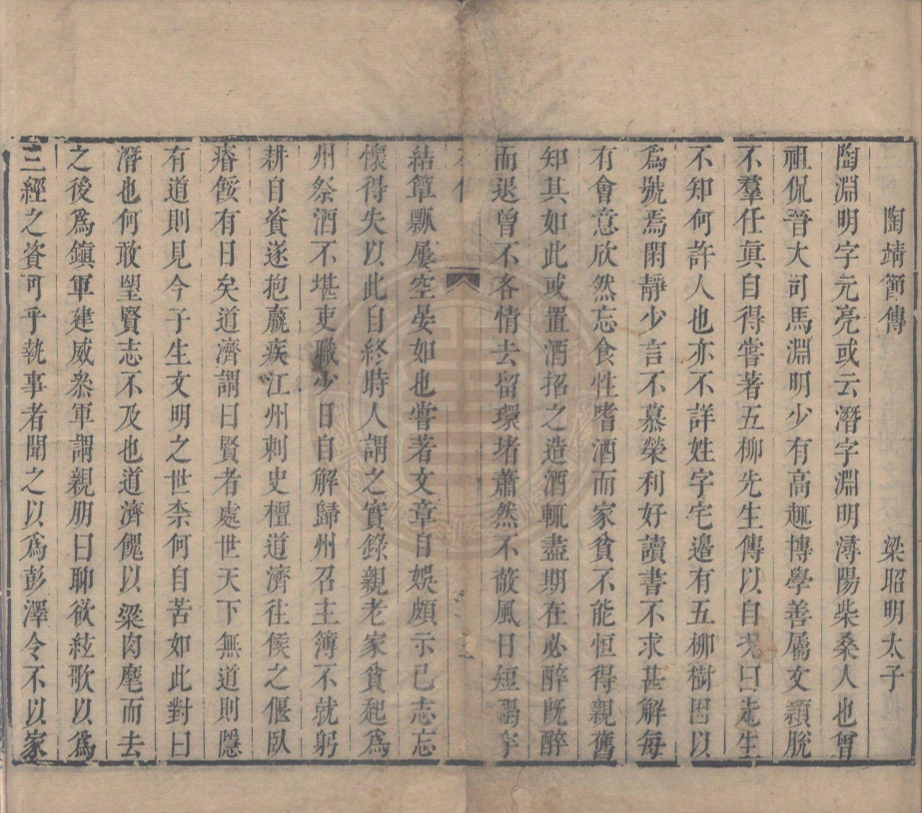 陶靖節傳　梁昭明太子
陶淵明字元亮或云潛字淵明潯陽柴桑人也曾
祖侃晉大司馬淵明少有高趣博學善屬文穎脫
不羣任眞自得嘗著五柳先生傳以自況曰先生
不知何許人也亦不詳姓字宅邊有五柳樹因以
爲號焉閑靜少言不慕榮利好讀書不求甚解每
有會意欣然忘食性嗜酒而家貧不能恒得親舊
知其如此或置酒招之造酒輒盡期在必醉旣醉
而退曾不吝情去留環堵蕭然不蔽風日短褐穿
結簞瓢屢空晏如也嘗著文章自娛頗示已志忘
懷得失以此自終時人謂之實錄親老家貧起爲
州祭酒不堪吏職少日自解歸州召主簿不就躬
耕自資遂抱羸疾江州刺史檀道濟往候之偃臥
瘠餒有日矣道濟謂曰賢者處世天下無道則隱
有道則見今子生文明之世柰何自苦如此對曰
潛也何敢望賢志不及也道濟餽以粱肉麾而去
之後爲鎭軍建威叅軍謂親朋曰聊欲絃歌以爲
三徑之資可乎執事者聞之以爲彭澤令不以家